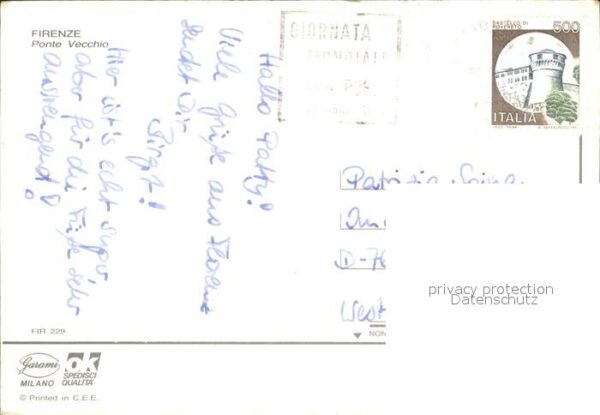 FIRENZE
Ponte Vecchio
Hallo Patty!
Viele Grüße aus Florenz
sendet Dir
Birgit!
Hier ist's echt super
aber für die Füße sehr
anstrengend!
GIORNATA
MONDIALE
CASTELLO DI
ROVERETO
500
ITALIA
Patrizia
D-76
West
privacy protection
Datenschutz
FIR 229
NON
Garami
MILANO
ok
SPEDISCI
QUALITÀ
© Printed in C.E.E.